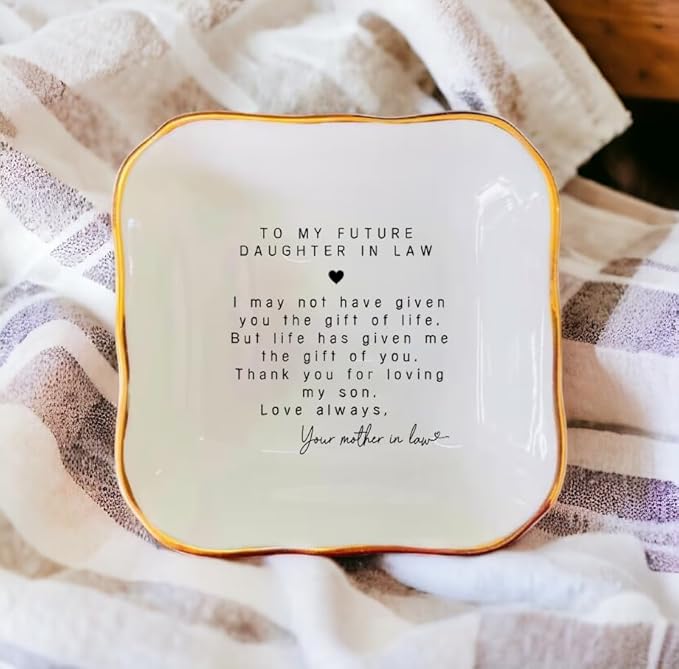 TO MY FUTURE
DAUGHTER IN LAW
I may not have given
you the gift of life.
But life has given me
the gift of you.
Thank you for loving
my son.
Love always,
Your mother in law